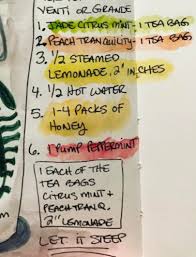 VENTI OR GRANDE
1. JADE CITRUS MINT - 1 TEA BAGS
2. PEACH TRANQUILITY - 1 TEA BAG
3. 1/2 STEAMED
LEMONADE, 2" INCHES
4. 1/2 HOT WATER
5. 1-4 PACKS OF
HONEY
6. 1 PUMP PEPPERMINT
1 EACH OF THE
TEA BAGS
CITRUS MINT +
PEACH TRANQ.
2" LEMONADE
LET IT STEEP